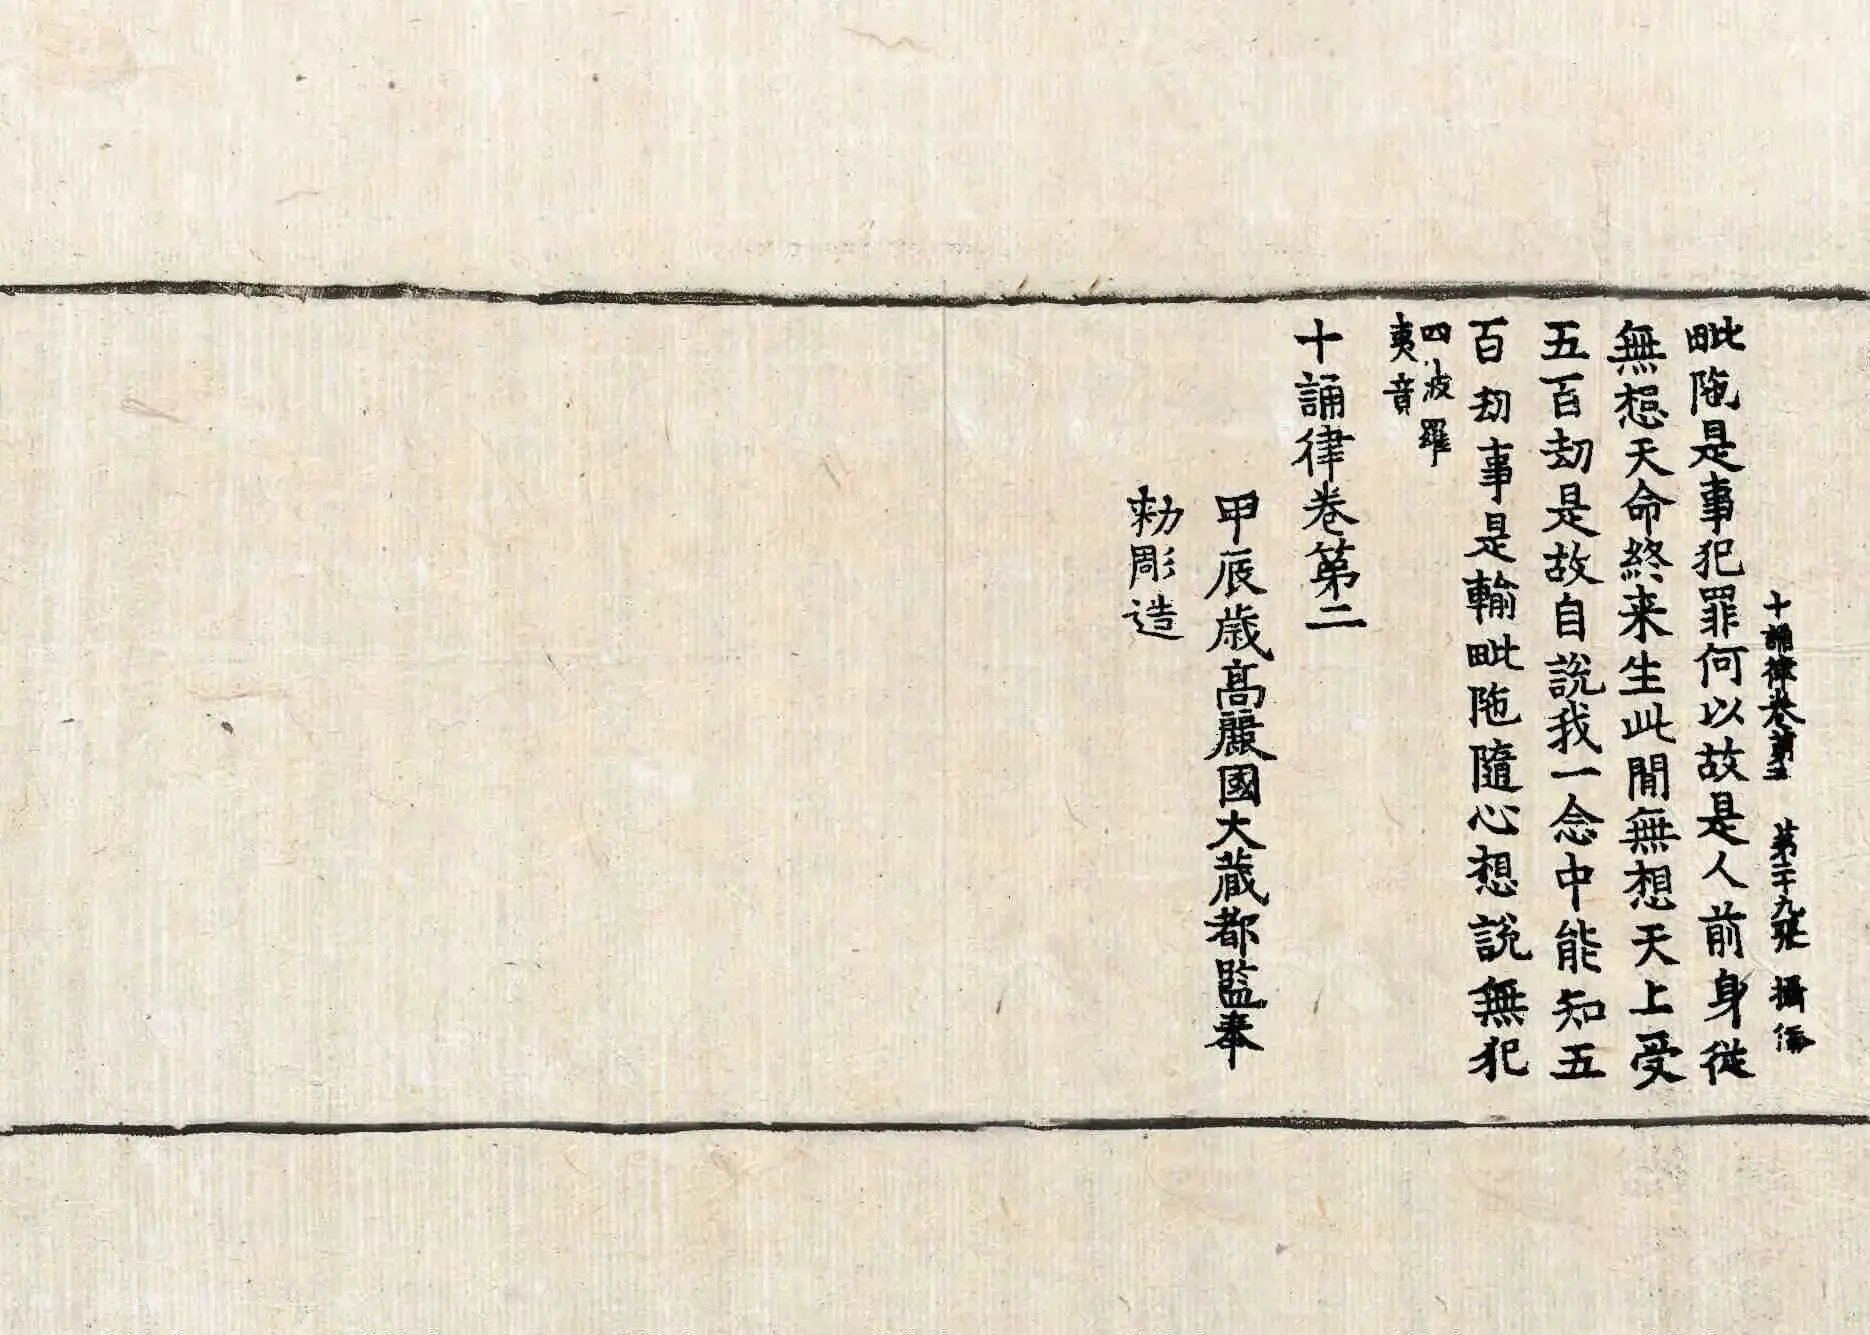 十誦律卷第二 第二十九張 攝 僑
毗陁是事犯罪何以故是人前身從
無想天命終来生此間無想天上受
五百劫是故自說我一念中能知五
百劫事是輸毗陁隨心想說無犯
四波羅
夷竟
十誦律卷第二
甲辰歲高麗國大藏都監奉
勑彫造